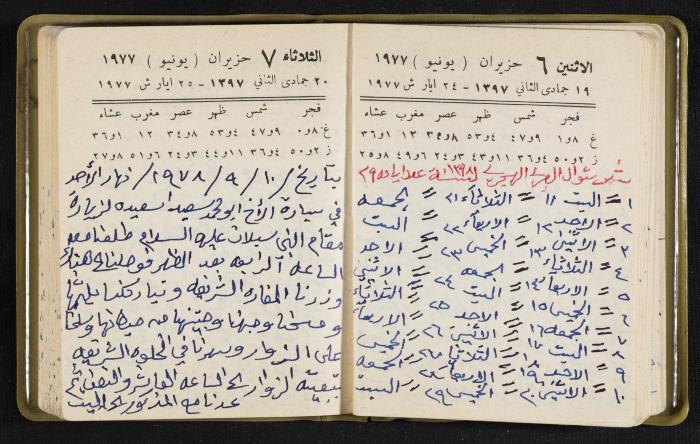 الاثنين ٦ حزيران ( يونيو ) ١٩٧٧
١٩ جمادى الثاني ١٣٩٧ - ٢٤ ايار ش ١٩٧٧
فجر شمس ظهر عصر مغرب عشاء
غ ٨و١ ٩و٤٧ ٤و٥٣ ٨و٣٥ ١٢ ١و٣٦
ز ٢و٥٠ ٤و٣٦ ١١و٤٣ ٣و٢٤ ٦و٤٩ ٨و٢٥
شهر شوال الهجري لسنة ١٣٩٨ عدد ايامه ٢٩
١ = السبت ١١ = الثلاثاء ٢١ = الجمعه
٢ = الاحد ١٢ = الاربعاء ٢٢ = السبت
٣ = الاثنين ١٣ = الخميس ٢٣ = الاحد
٤ = الثلاثاء ١٤ = الجمعه ٢٤ = الاثنين
٥ = الاربعاء ١٥ = السبت ٢٥ = الثلاثاء
٦ = الخميس ١٦ = الاحد ٢٦ = الاربعاء
٧ = الجمعه ١٧ = الاثنين ٢٧ = الخميس
٨ = السبت ١٨ = الثلاثاء ٢٨ = الجمعه
٩ = الاحد ١٩ = الاربعاء ٢٩ = السبت
١٠ = الاثنين ٢٠ = الخميس
الثلاثاء ٧ حزيران ( يونيو ) ١٩٧٧
٢٠ جمادى الثاني ١٣٩٧ - ٢٥ ايار ش ١٩٧٧
فجر شمس ظهر عصر مغرب عشاء
غ ٨و٠ ٩و٤٧ ٤و٥٣ ٨و٣٤ ١٢ ١و٣٦
ز ٢و٥٠ ٤و٣٦ ١١و٤٤ ٣و٢٤ ٦و٥١ ٨و٢٧
بتاريخ / ١٠ / ٩ / ١٩٧٨ / نهار الأحد
في سيارة الأخ ابو محمد سعيد اسعيد لزيارة
مقام النبي سبلان عليه السلام طلعنا معه
الساعة الرابعه بعد الظهر فوصلنا الى هناك
وزرنا المغاره الشريفه وتباركنا
و
على الزوار وسهرنا في الخلوه الشريفه
بقية الزوار الساعه العاشره والنصف ثم
عدنا مع المذكور الى البيت